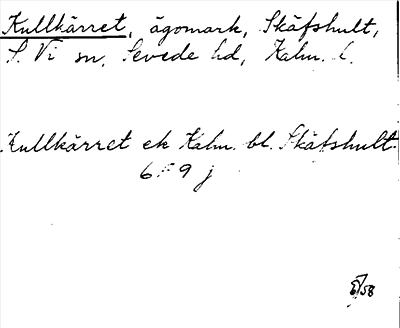 Kullkärret, ägomark, Skäfshult,
S. Vi sn, Sevede hd, Kalm. l.
Kullkärret ek Kalm. bl. Skäfshult
6 F 9 j
/58